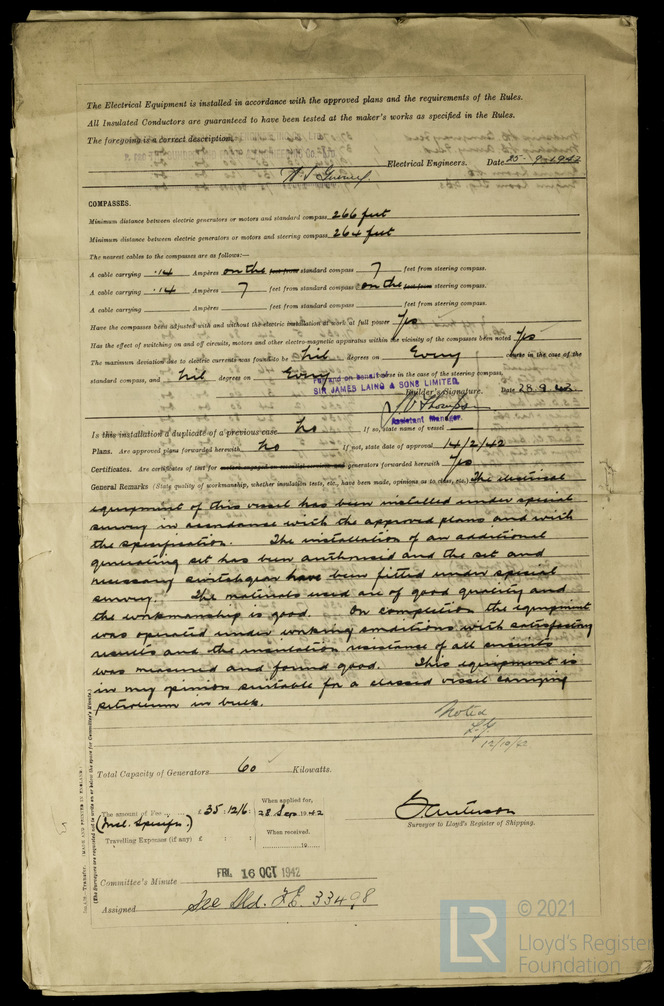 The Electrical Equipment is installed in accordance with the approved plans and the requirements of the Rules.
All Insulated Conductors are guaranteed to have been tested at the maker's works as specified in the Rules.
The foregoing is a correct description.
Electrical Engineers. Date 25-9-1942
COMPASSES.
Minimum distance between electric generators or motors and standard compass 266 feet
Minimum distance between electric generators or motors and steering compass 264 feet
The nearest cables to the compasses are as follows:—
A cable carrying .14 Ampères on the standard compass 7 feet from steering compass.
A cable carrying .14 Ampères 7 feet from standard compass on the steering compass.
A cable carrying Ampères feet from standard compass feet from steering compass.
Have the compasses been adjusted with and without the electric installation at work at full power Yes
Has the effect of switching on and off circuits, motors and other electro-magnetic apparatus within the vicinity of the compasses been noted Yes
The maximum deviation due to electric currents was found to be Nil degrees on Every course in the case of the
standard compass, and Nil degrees on Every course in the case of the steering compass.
For and on behalf of
SIR JAMES LAING & SONS LIMITED,
Builder's Signature. Date 28.9.42.
Assistant Manager.
Is this installation a duplicate of a previous case No If so, state name of vessel
Plans. Are approved plans forwarded herewith No If not, state date of approval 14/2/42
Certificates. Are certificates of test for generators forwarded herewith Yes
General Remarks (State quality of workmanship, whether insulation tests, etc., have been made, opinions as to class, etc.) The electrical
equipment of this vessel has been installed under special
survey in accordance with the approved plans and with
the specification. The installation of an additional
generating set has been authorised and the set and
necessary switchgear have been fitted under special
survey. The materials used are of good quality and
the workmanship is good. On completion the equipment
was operated under working conditions with satisfactory
results and the insulation resistance of all circuits
was measured and found good. This equipment is
in my opinion suitable for a classed vessel carrying
petroleum in bulk.
Noted
12/10/42
Total Capacity of Generators 60 Kilowatts.
The amount of Fee £ 35:12/6: When applied for, 28 Sep 1942
(Incl. Specifn.)
Travelling Expenses (if any) £ : : When received, 19
Surveyor to Lloyd's Register of Shipping.
Committee's Minute FRI. 16 OCT 1942
Assigned See Sld. F.E. 33498
(The Surveyors are requested not to write on or below the space for Committee's Minute.)
© 2021
LR Lloyd's Register
Foundation